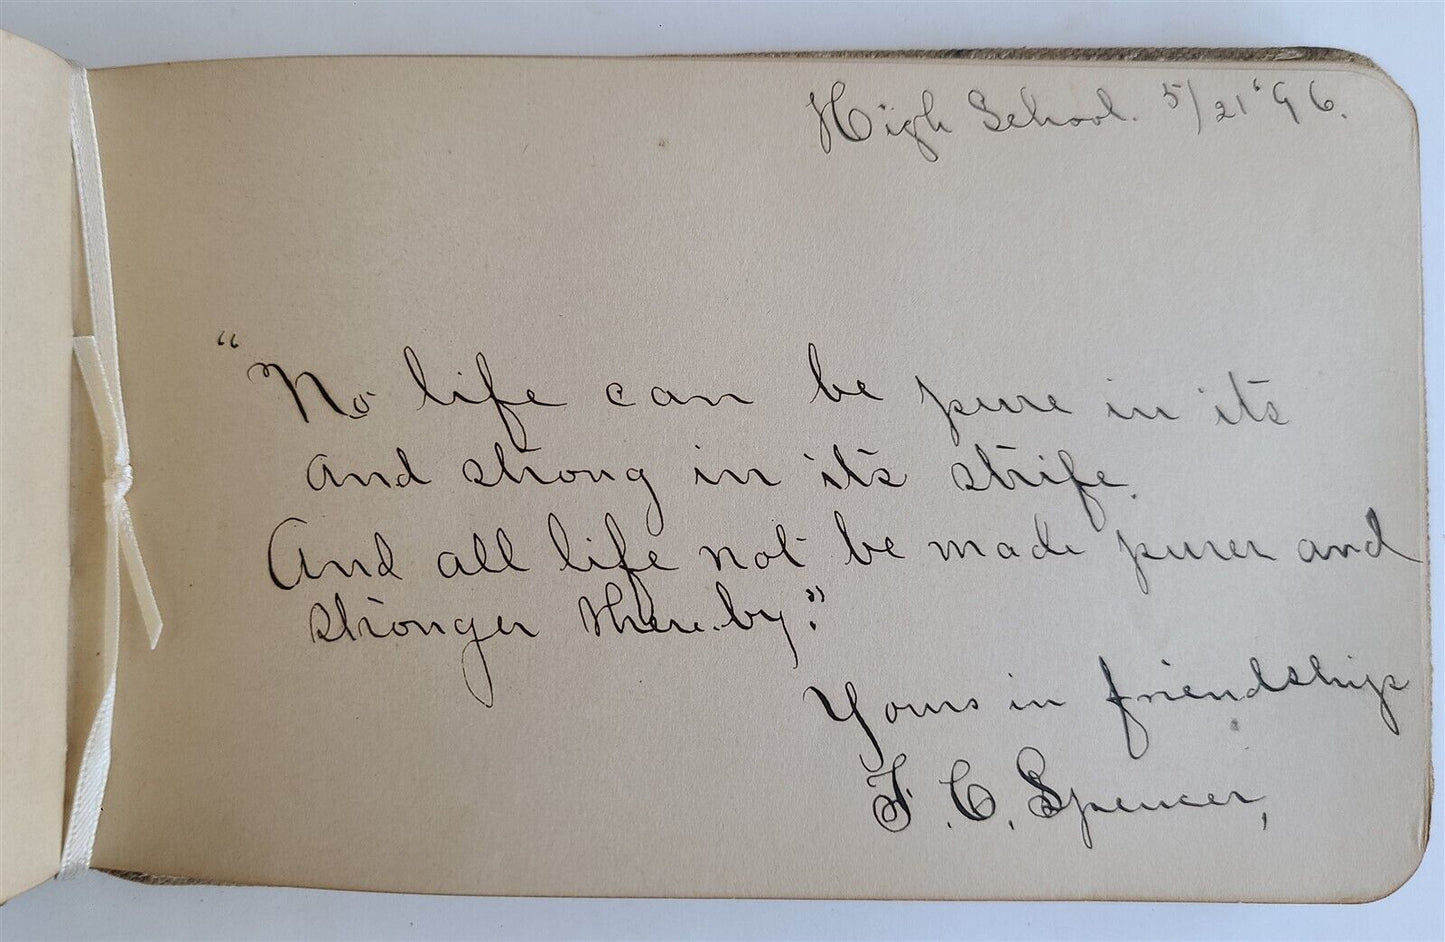 High School. 5/21 '96.
"No life can be pure in its
and strong in its strife.
And all life not be made purer and
stronger thereby."
Yours in friendship
F. C. Spencer,